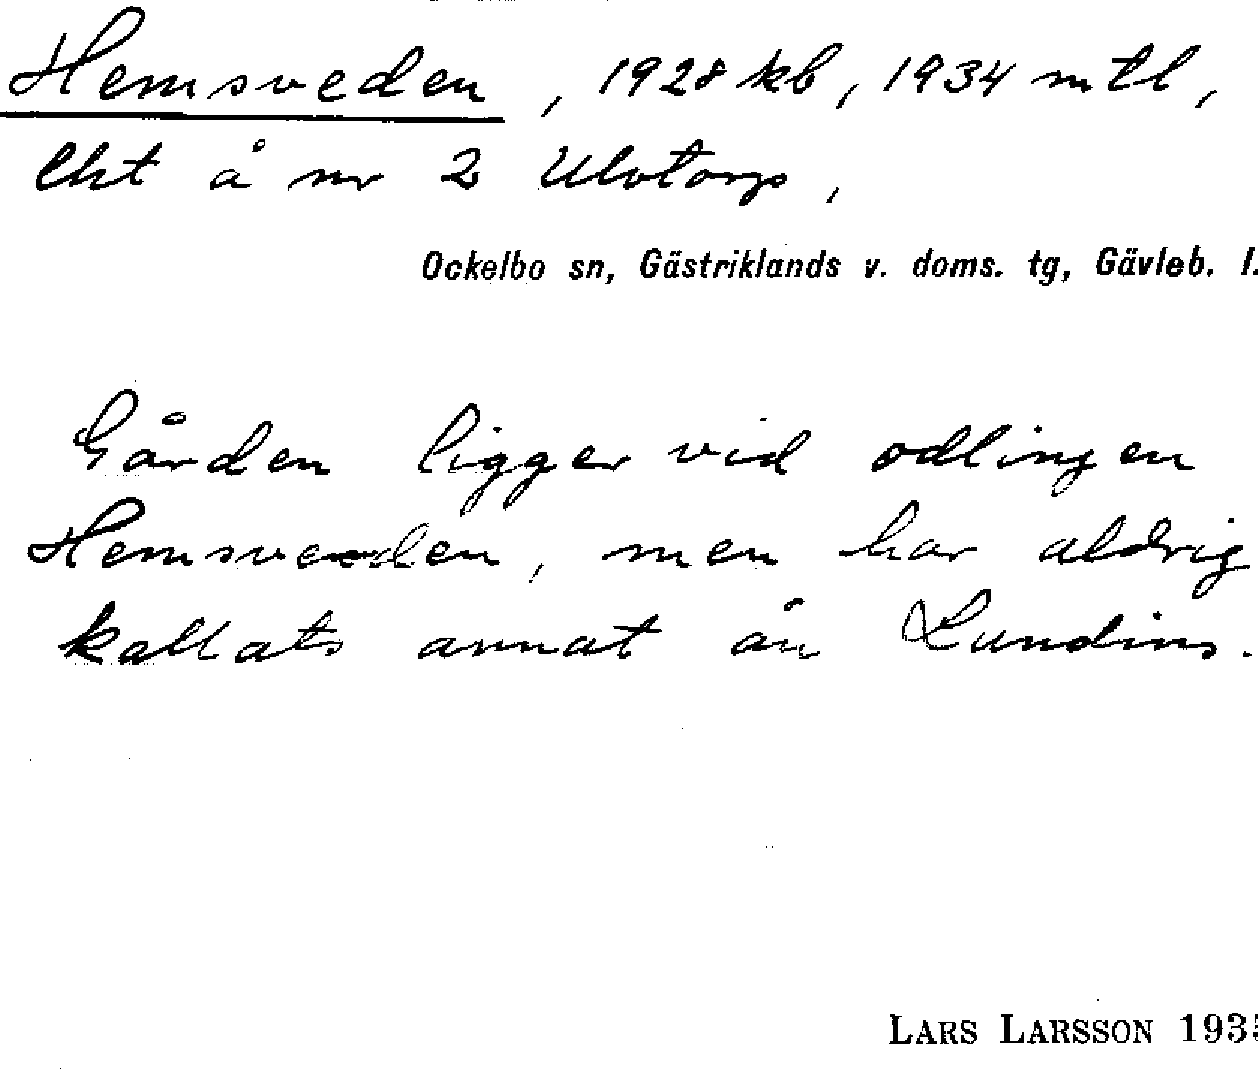 Hemsveden, 1928 kb, 1934 mtl,
lht å nr 2 Ulvtorp,
Ockelbo sn, Gästriklands v. doms. tg, Gävleb. l.
Gården ligger vid odlingen
Hemsveden, men har aldrig
kallats annat än Lundins.
LARS LARSSON 1935